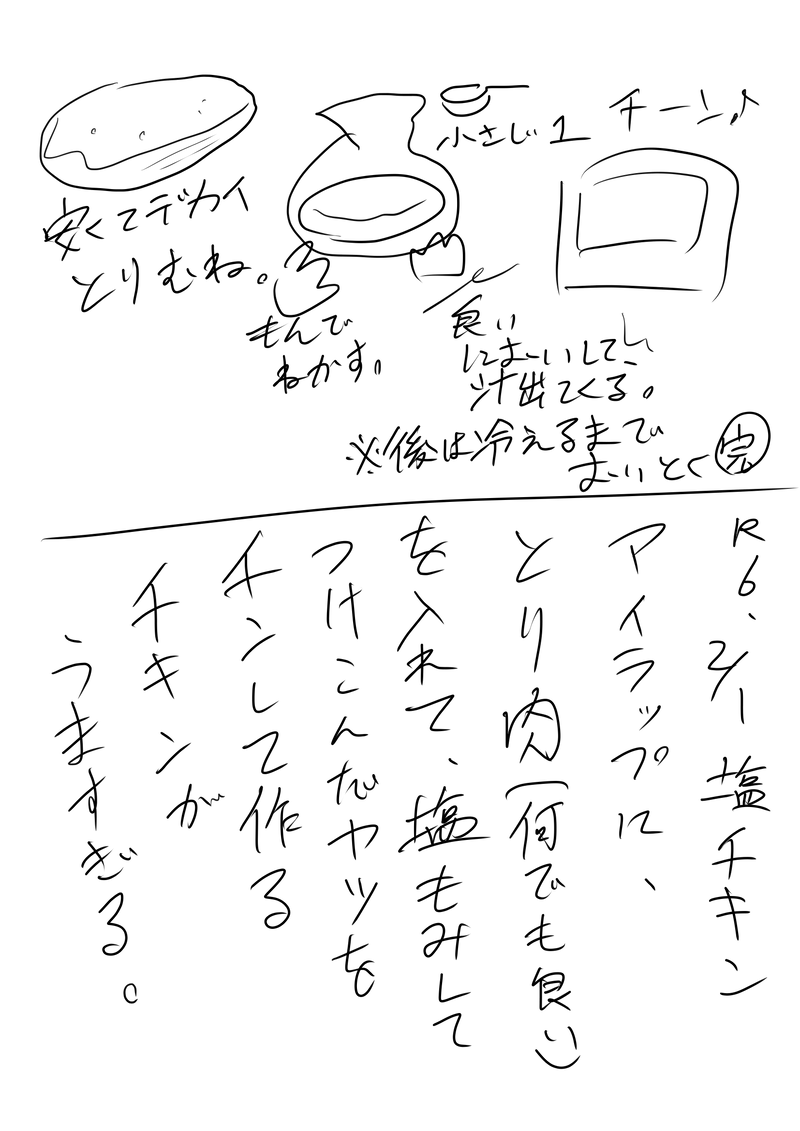 安くてデカイ
とりむね。
もんで
ねかす。
小さじ1
チーン♪
良い
におーいして、
汁出てくる。
※後は冷えるまで
おいとく 完
R6、2/1 塩チキン
アイラップに、
とり肉(何でも良い)
を入れて、塩もみして
つけこんだヤツを
チンして作る
チキンが
うますぎる。